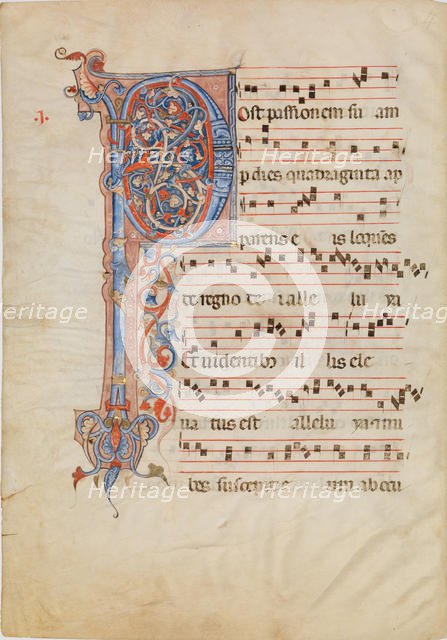 .I.
Post passionem su am
p dies quadraginta ap
parens e is loq̄ues
de regno dei alle lu ya
Et uidentib9 il lis ele
ua tus est allelu ya nu
bes suscepit e um ab ocu
Heritage
Heritage
Heritage
Heritage
Heritage
Heritage
Heritage